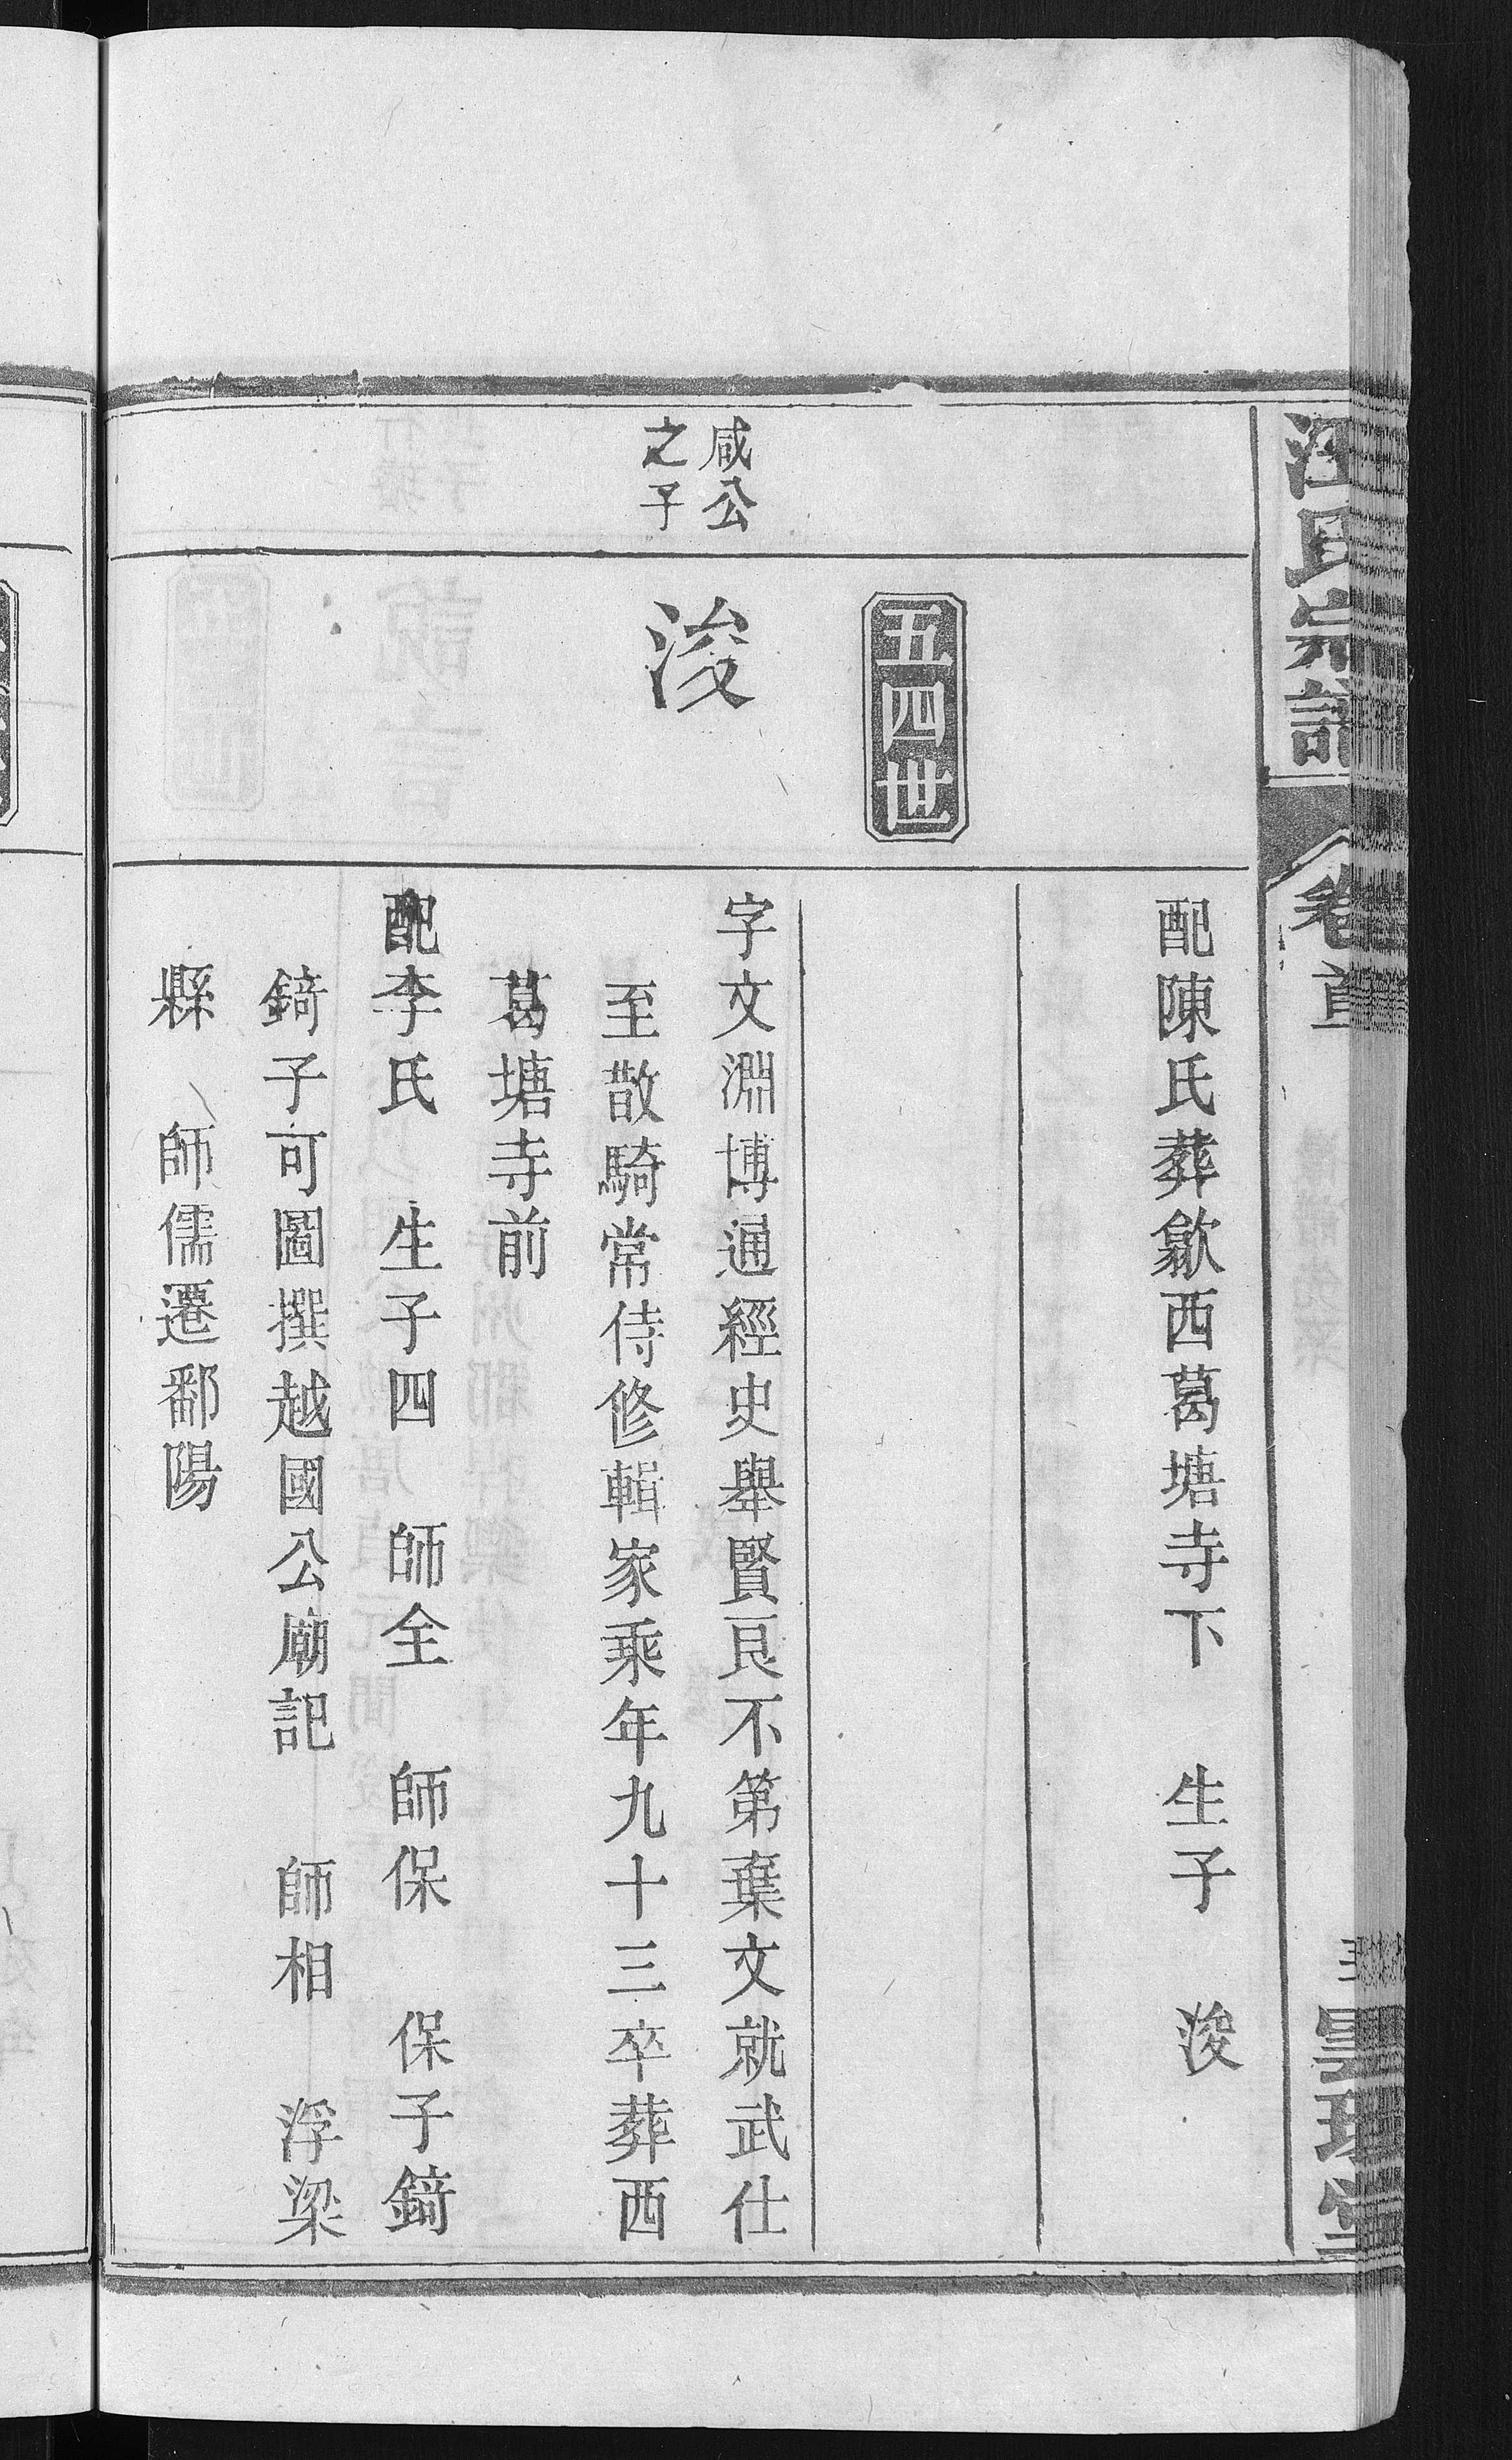 汪氏宗譜
卷首
配陳氏葬歙西葛塘寺下　生子　浚
五四世
咸公
之子
浚
字文淵博通經史舉賢良不第棄文就武仕
至散騎常侍修輯家乘年九十三卒葬西
葛塘寺前
配李氏　生子四　師全　師保　保子錡
錡子可圖撰越國公廟記　師相　浮梁
縣　師儒遷鄱陽